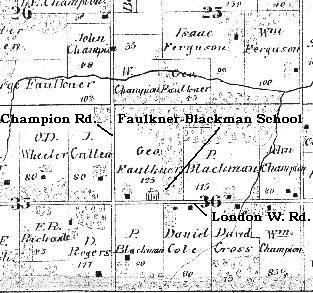 26
25
E. Champion
John
Champion
48
35
Isaac
Ferguson
80
Wm
Ferguson
80
W.
Champion
Geo.
Faulkner
43
100
Faulkner
103
Champion Rd.
Faulkner-Blackman School
O.D.
Wheeler
80
J.
Cullen
80
Geo.
Faulkner
125
P.
Blackman
115
John
Champion
80
35
36
London W. Rd.
E.R.
D.
Rogers
177
P.
Blackman
60
David
Cole
80
David
Gross
Wm
Champion